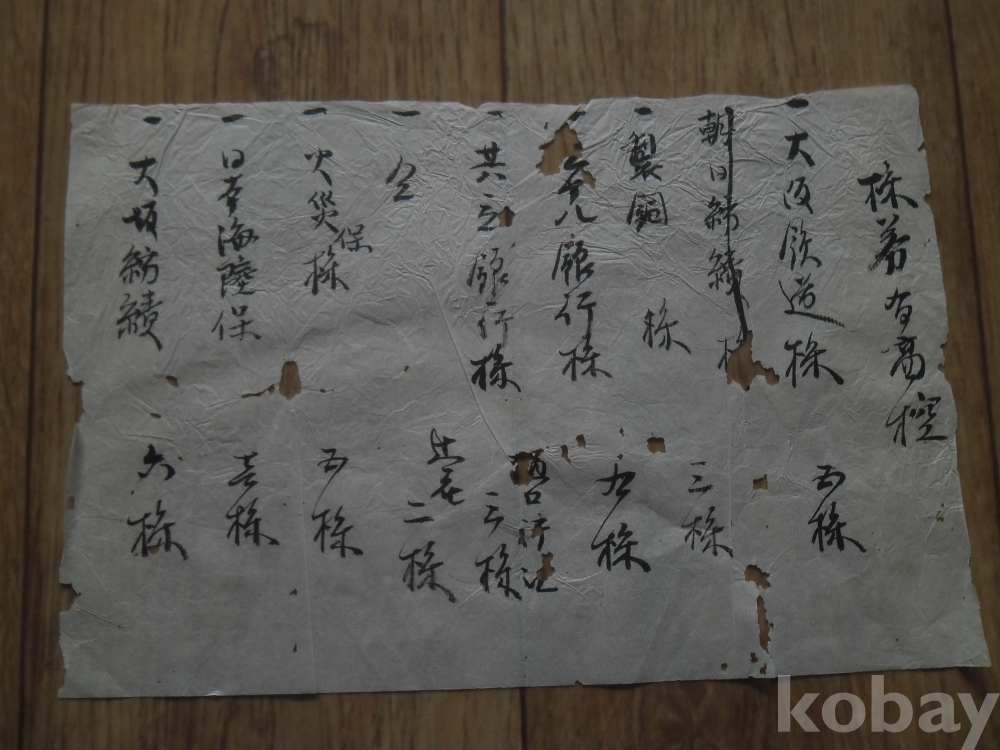 株券有高控
一 大阪鉄道株 五株
朝日紡績株
一 製銅株 三株
八銀行株 九株
一 共立銀行株 三株
一 仝 二株
一 火災保株 五株
一 日本海陸保 壱株
一 大坂紡績 六株
kobay